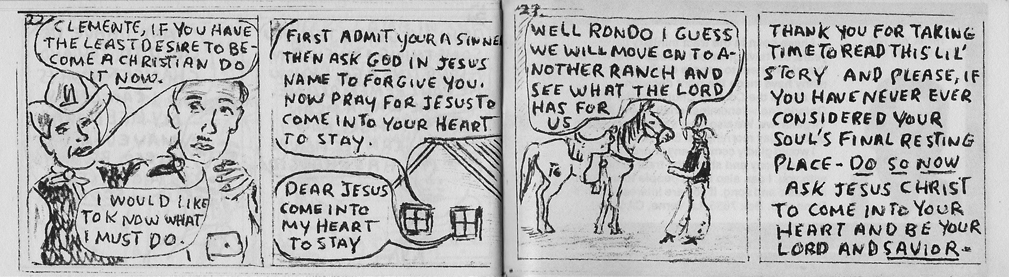 22
CLEMENTE, IF YOU HAVE
THE LEAST DESIRE TO BE-
COME A CHRISTIAN DO
IT NOW.
I WOULD LIKE
TO KNOW WHAT
I MUST DO.
FIRST ADMIT YOUR A SINNE
THEN ASK GOD IN JESUS
NAME TO FORGIVE YOU.
NOW PRAY FOR JESUS TO
COME INTO YOUR HEART
TO STAY.
DEAR JESUS
COME INTO
MY HEART
TO STAY
23
WELL RONDO I GUESS
WE WILL MOVE ON TO A-
NOTHER RANCH AND
SEE WHAT THE LORD
HAS FOR
US
THANK YOU FOR TAKING
TIME TO READ THIS LIL'
STORY AND PLEASE, IF
YOU HAVE NEVER EVER
CONSIDERED YOUR
SOUL'S FINAL RESTING
PLACE- DO SO NOW
ASK JESUS CHRIST
TO COME INTO YOUR
HEART AND BE YOUR
LORD AND SAVIOR.